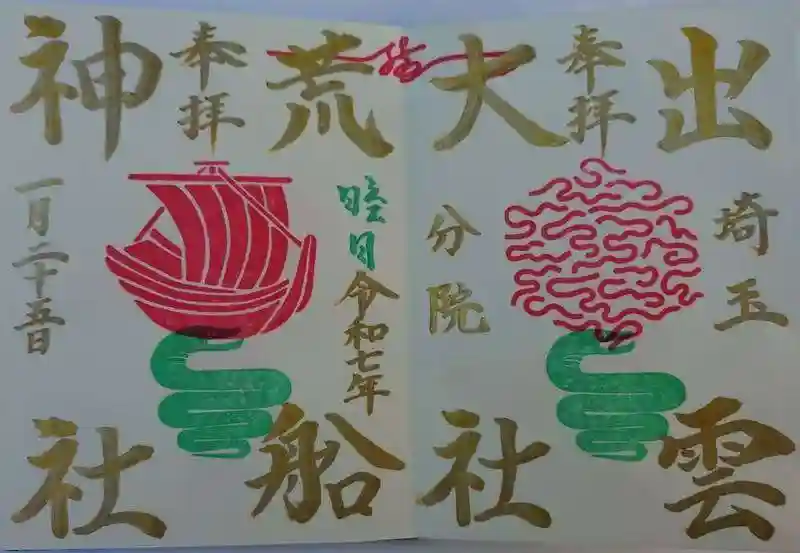 出雲
埼玉
奉拝
大社
分院
荒船
睦月
令和七年
奉拝
神社
一月二十五日